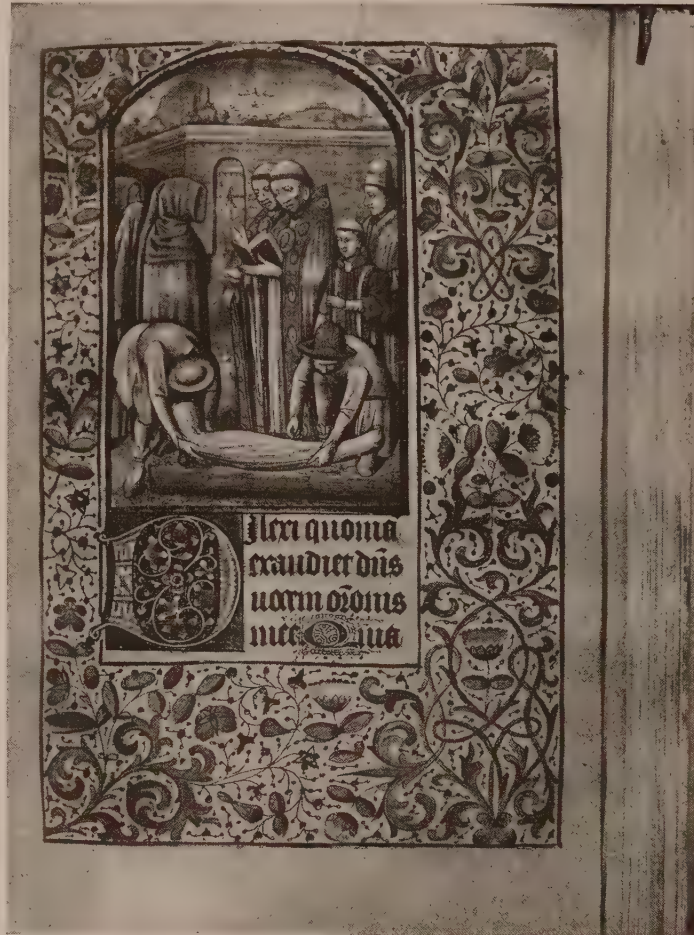 Dilexi quonia
exaudiet dn̄s
uocem or̄onis
mee Quia